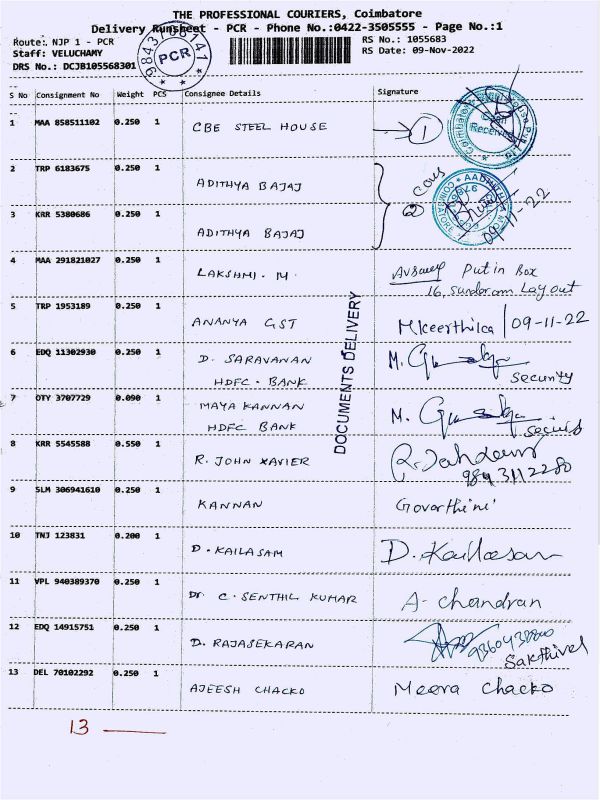 THE PROFESSIONAL COURIERS, Coimbatore
Delivery Runsheet - PCR - Phone No.:0422-3505555 - Page No.:1
Route: NJP 1 - PCR
Staff: VELUCHAMY
DRS No.: DCJB105568301
PCR
RS No.: 1055683
RS Date: 09-Nov-2022
S No Consignment No Weight PCS Consignee Details Signature
1 MAA 858511102 0.250 1 CBE STEEL HOUSE 1
2 TRP 6183675 0.250 1 ADITHYA BAJAJ
2 cous
3 KRR 5380686 0.250 1 ADITHYA BAJAJ 09-11-22
4 MAA 291821027 0.250 1 LAKSHMI. M. Put in Box
16, Sundaram Layout
5 TRP 1953189 0.250 1 ANANYA GST M.keerthika | 09-11-22
6 EDQ 11302930 0.250 1 D. SARAVANAN
HDFC. BANK security
7 OTY 3707729 0.090 1 MAYA KANNAN M.
HDFC BANK
DOCUMENTS DELIVERY
8 KRR 5545588 0.550 1 R. JOHN XAVIER
9843112280
9 SLM 306941610 0.250 1 KANNAN Govarthini
10 TNJ 123831 0.200 1 D. KAILASAM D. Kailasam
11 VPL 940389370 0.250 1 Dr. C. SENTHIL KUMAR A. chandran
12 EDQ 14915751 0.250 1 D. RAJASEKARAN
Sakthivel
13 DEL 70102292 0.250 1 AJEESH CHACKO Meera chacko
13